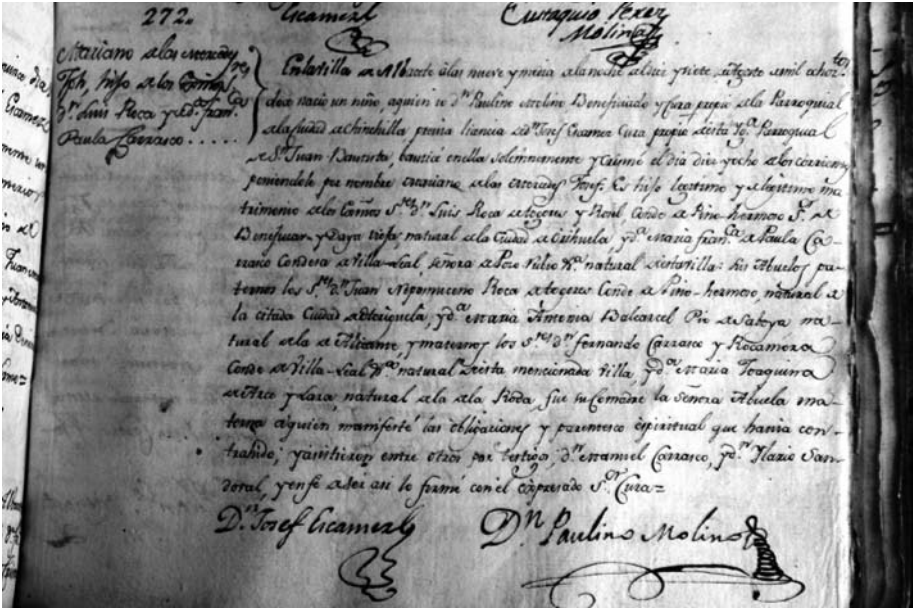 272.
Escamez
Eustaquio Perez
Molina
Mariano de las Mercedes
Jph, hijo de los
Dn. Luis Roca y Da. Franca.
Paula Carrasco . . . . .
En la villa de Albacete a las nueve y media de la noche del diez y siete de Agosto de mil ochos.tos
doce nacio un niño, a quien io Dn. Paulino Molino Beneficiado y Cura propio de la Parroquial
de la ciudad de Chinchilla previa licencia de Dn. Josef Escamez Cura propio de esta Parroquial
de Sn. Juan Bautista, bauticé en ella solemnemente y Crismé el dia diez y ocho de los corrientes
poniendole por nombre Mariano de las Mercedes Josef. Es hijo legitimo y de legitimo ma-
trimonio de los Sres. Dn. Luis Roca de Togores y Conde de Pino-hermoso Sr. de
Benejuzar y Daya vieja, natural de la Ciudad de Orihuela y Da. Maria Franca. de Paula Ca-
rrasco Condesa de Villa-Leal, señora de Pozo Rubio natural de esta villa: sus Abuelos pa-
ternos los Sres. Dn. Juan Nepomuceno Roca de Togores Conde de Pino-hermoso, natural de
la citada Ciudad de Origuela, y Da. Maria Antonia Balcarcel Pio de Saboya na-
tural de la de Alicante, y maternos los Sres. Dn. Fernando Carrasco y Rocamora
Conde de Villa-Leal natural de esta mencionada villa, y Da. Maria Joaquina
de Arce y Lara, natural de la de la Roda, fue su Comadre la Señora Abuela ma-
terna a quien manifesté las obligaciones y parentesco espiritual que havia con-
trahido; y asistieron entre otros por testigos, Dn. Manuel Carrasco, y Dn. Ilario San-
doval, y en fe de ser asi lo firmé con el expresado Sr. Cura=
Dn. Josef Escamez
Dn. Paulino Molino